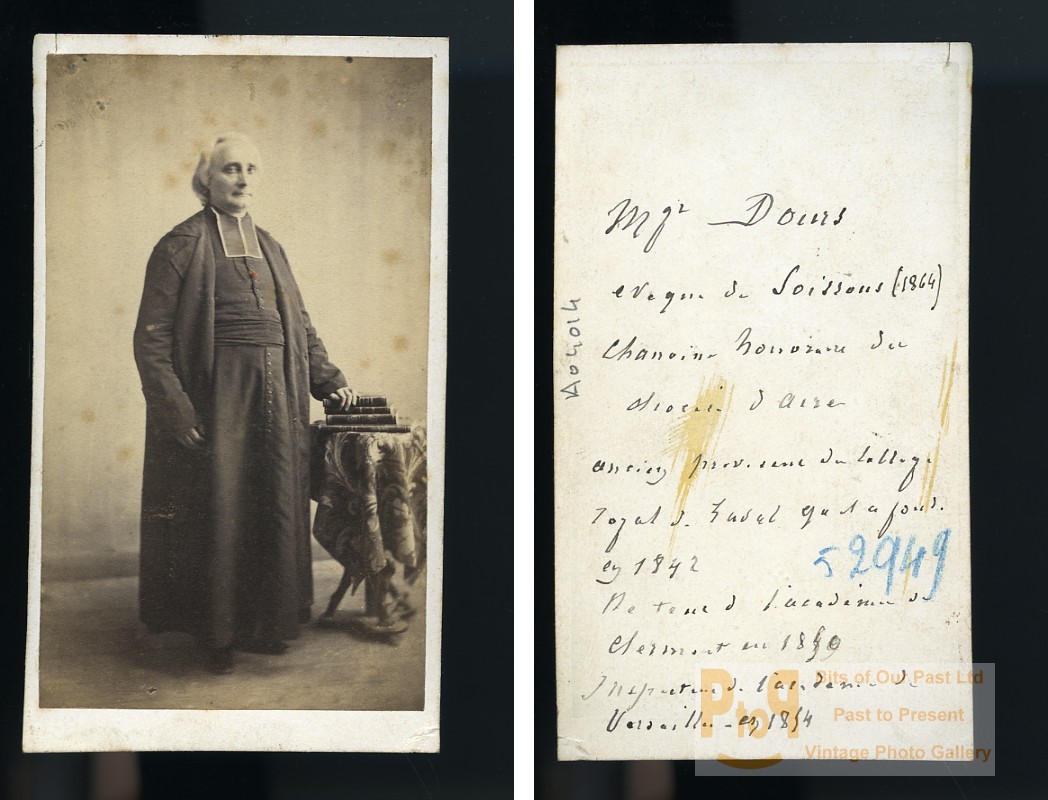 Mgr Dours
eveque de Soissons (1864)
Chanoine honoraire du
diocese d'Aire
ancien proviseur du College
royal de Laval qu'il a fondé
en 1842
Recteur de l'academie de
Clermont en 1850
Inspecteur de l'academie de
Versailles - en 1854
52949
A04014
PtoP
Bits of Our Past Ltd
Past to Present
Vintage Photo Gallery